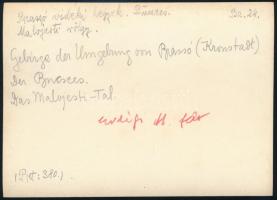 Brassó vidéki hegyek. Bucsecs. Br. 24.
Malojesti völgy.
Gebirge der Umgebung von Brassó (Kronstadt)
Der Bucsecs.
Das Malojesti-Tal.
Erdélyi M. felv